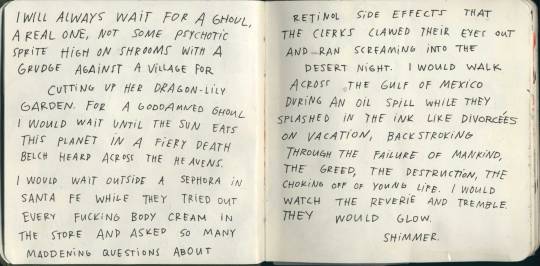 I WILL ALWAYS WAIT FOR A GHOUL,
A REAL ONE, NOT SOME PSYCHOTIC
SPRITE HIGH ON SHROOMS WITH A
GRUDGE AGAINST A VILLAGE FOR
CUTTING UP HER DRAGON-LILY
GARDEN. FOR A GODDAMNED GHOUL
I WOULD WAIT UNTIL THE SUN EATS
THIS PLANET IN A FIERY DEATH
BELCH HEARD ACROSS THE HEAVENS.
I WOULD WAIT OUTSIDE A SEPHORA IN
SANTA FE WHILE THEY TRIED OUT
EVERY FUCKING BODY CREAM IN
THE STORE AND ASKED SO MANY
MADDENING QUESTIONS ABOUT
RETINOL SIDE EFFECTS THAT
THE CLERKS CLAWED THEIR EYES OUT
AND RAN SCREAMING INTO THE
DESERT NIGHT. I WOULD WALK
ACROSS THE GULF OF MEXICO
DURING AN OIL SPILL WHILE THEY
SPLASHED IN THE INK LIKE DIVORCÉES
ON VACATION, BACKSTROKING
THROUGH THE FAILURE OF MANKIND,
THE GREED, THE DESTRUCTION, THE
CHOKING OFF OF YOUNG LIFE. I WOULD
WATCH THE REVERIE AND TREMBLE.
THEY WOULD GLOW.
SHIMMER.